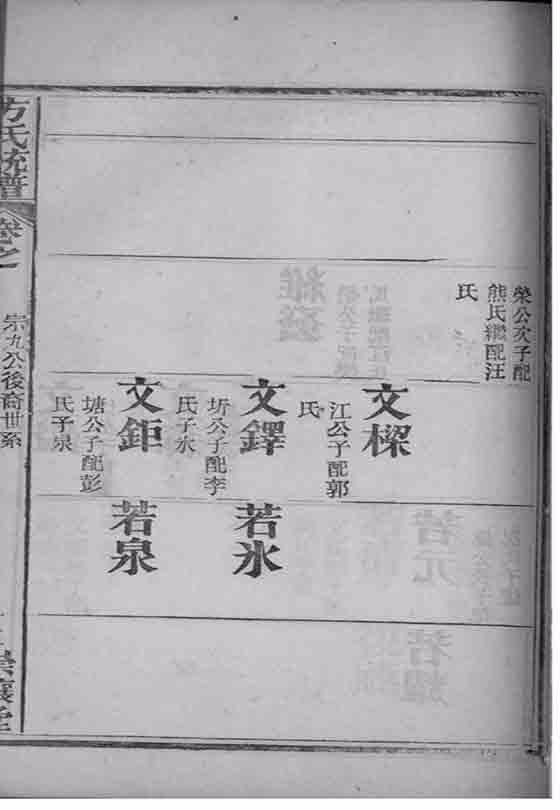 榮公次子配
熊氏繼配汪
氏
文樑
江公子配郭
氏
文鐸
圻公子配李
氏子氷
若氷
文鉅
塘公子配彭
氏子泉
若泉
方氏統譜
卷之
宗九公後裔世系